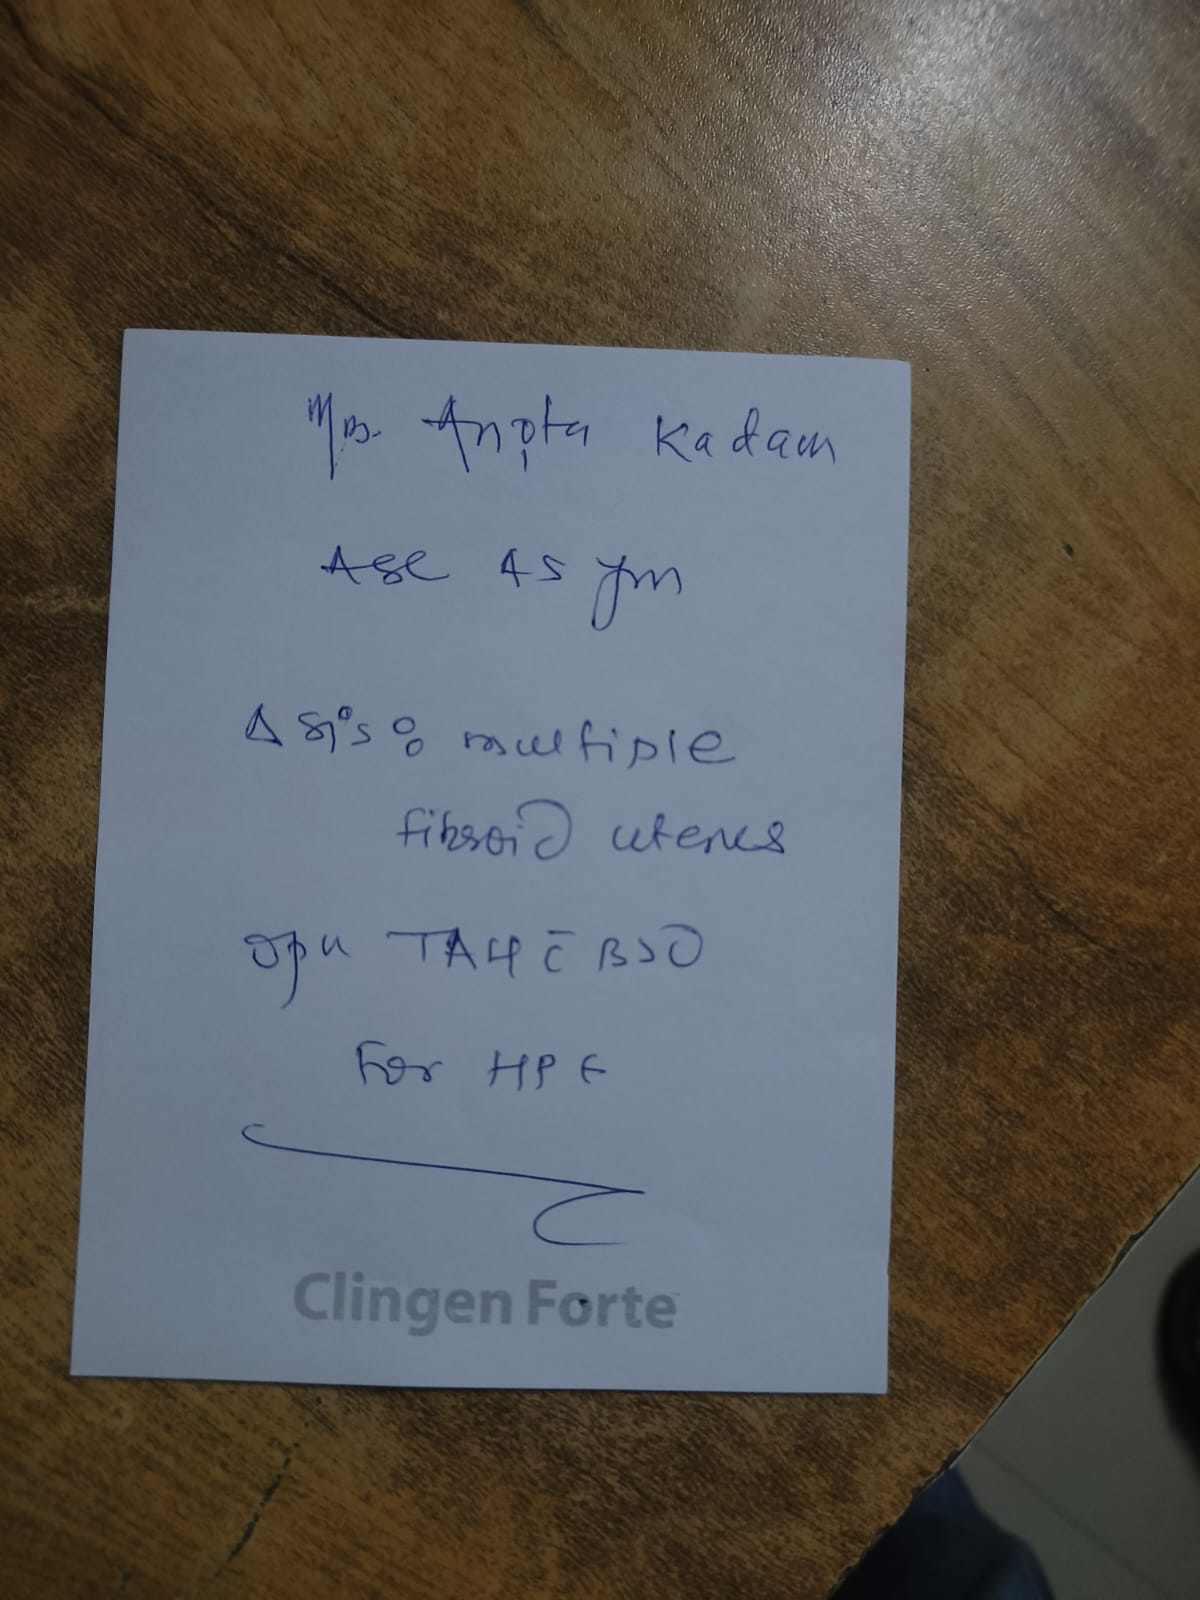 Mrs. Anita Kadam
Age 45 yrs
Δ sis : multiple
fibroid uterus
opn TAH c̄ BSO
For HPE
Clingen Forte